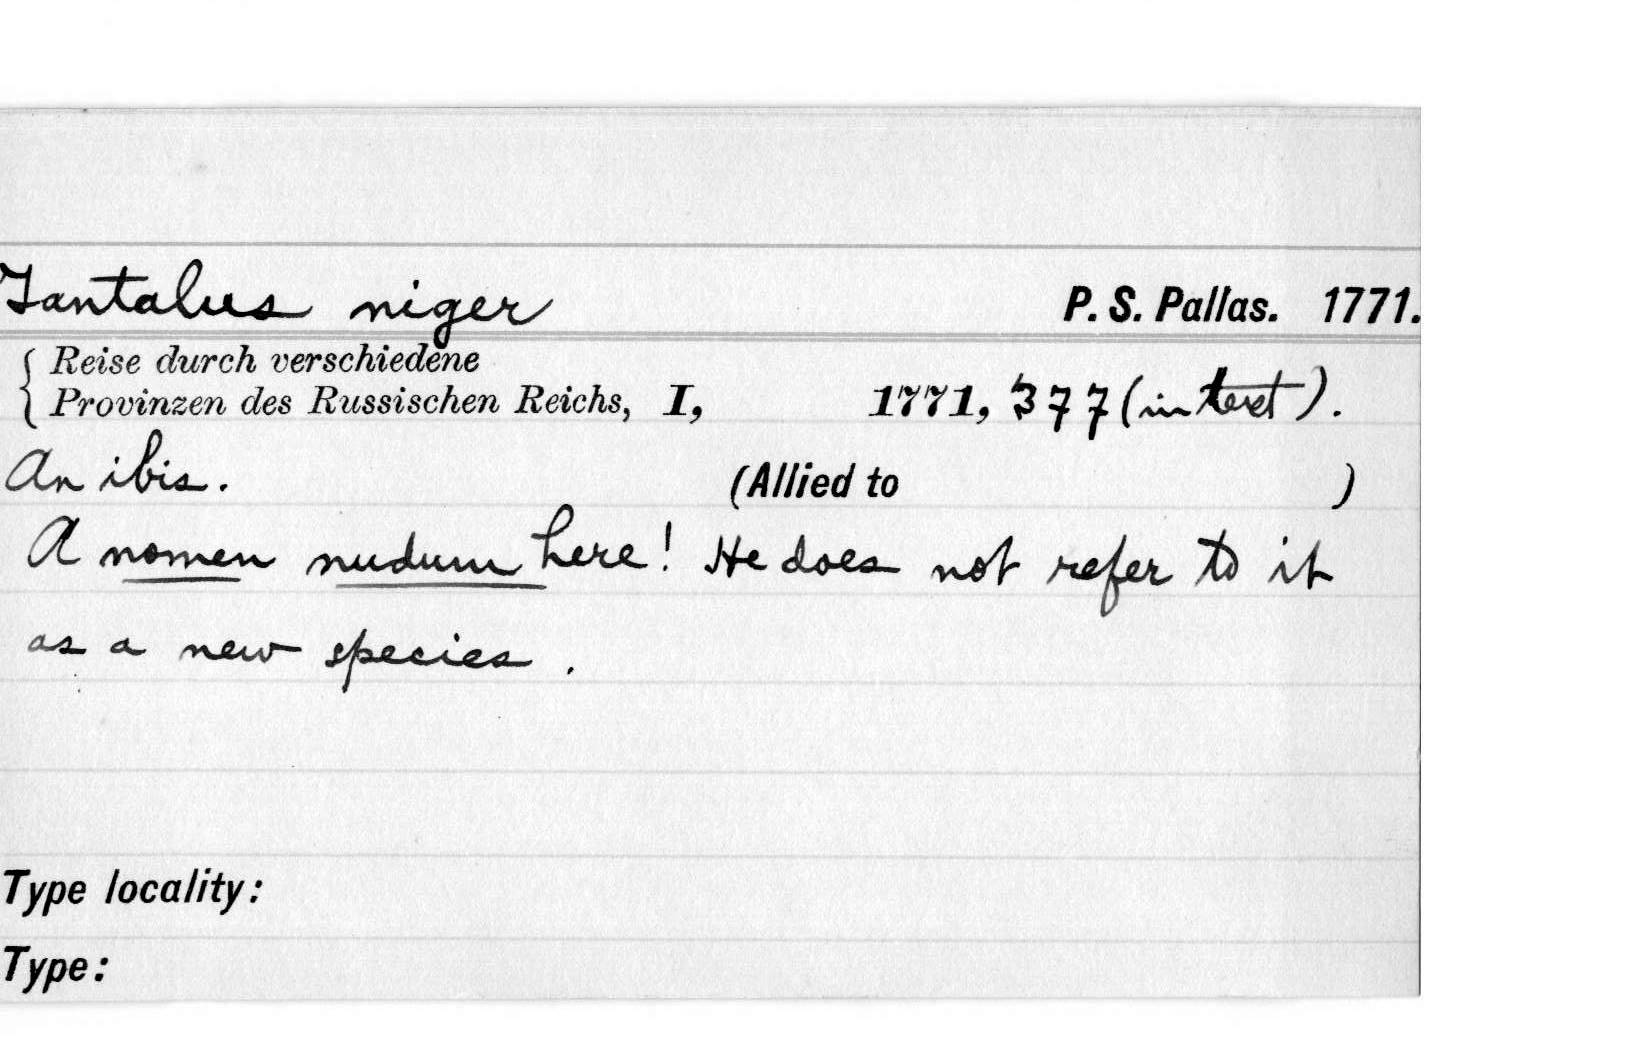 Tantalus niger P. S. Pallas. 1771.
Reise durch verschiedene
Provinzen des Russischen Reichs, I, 1771, 377 (in text).
An ibis. (Allied to )
A nomen nudum here! He does not refer to it
as a new species.
Type locality:
Type: